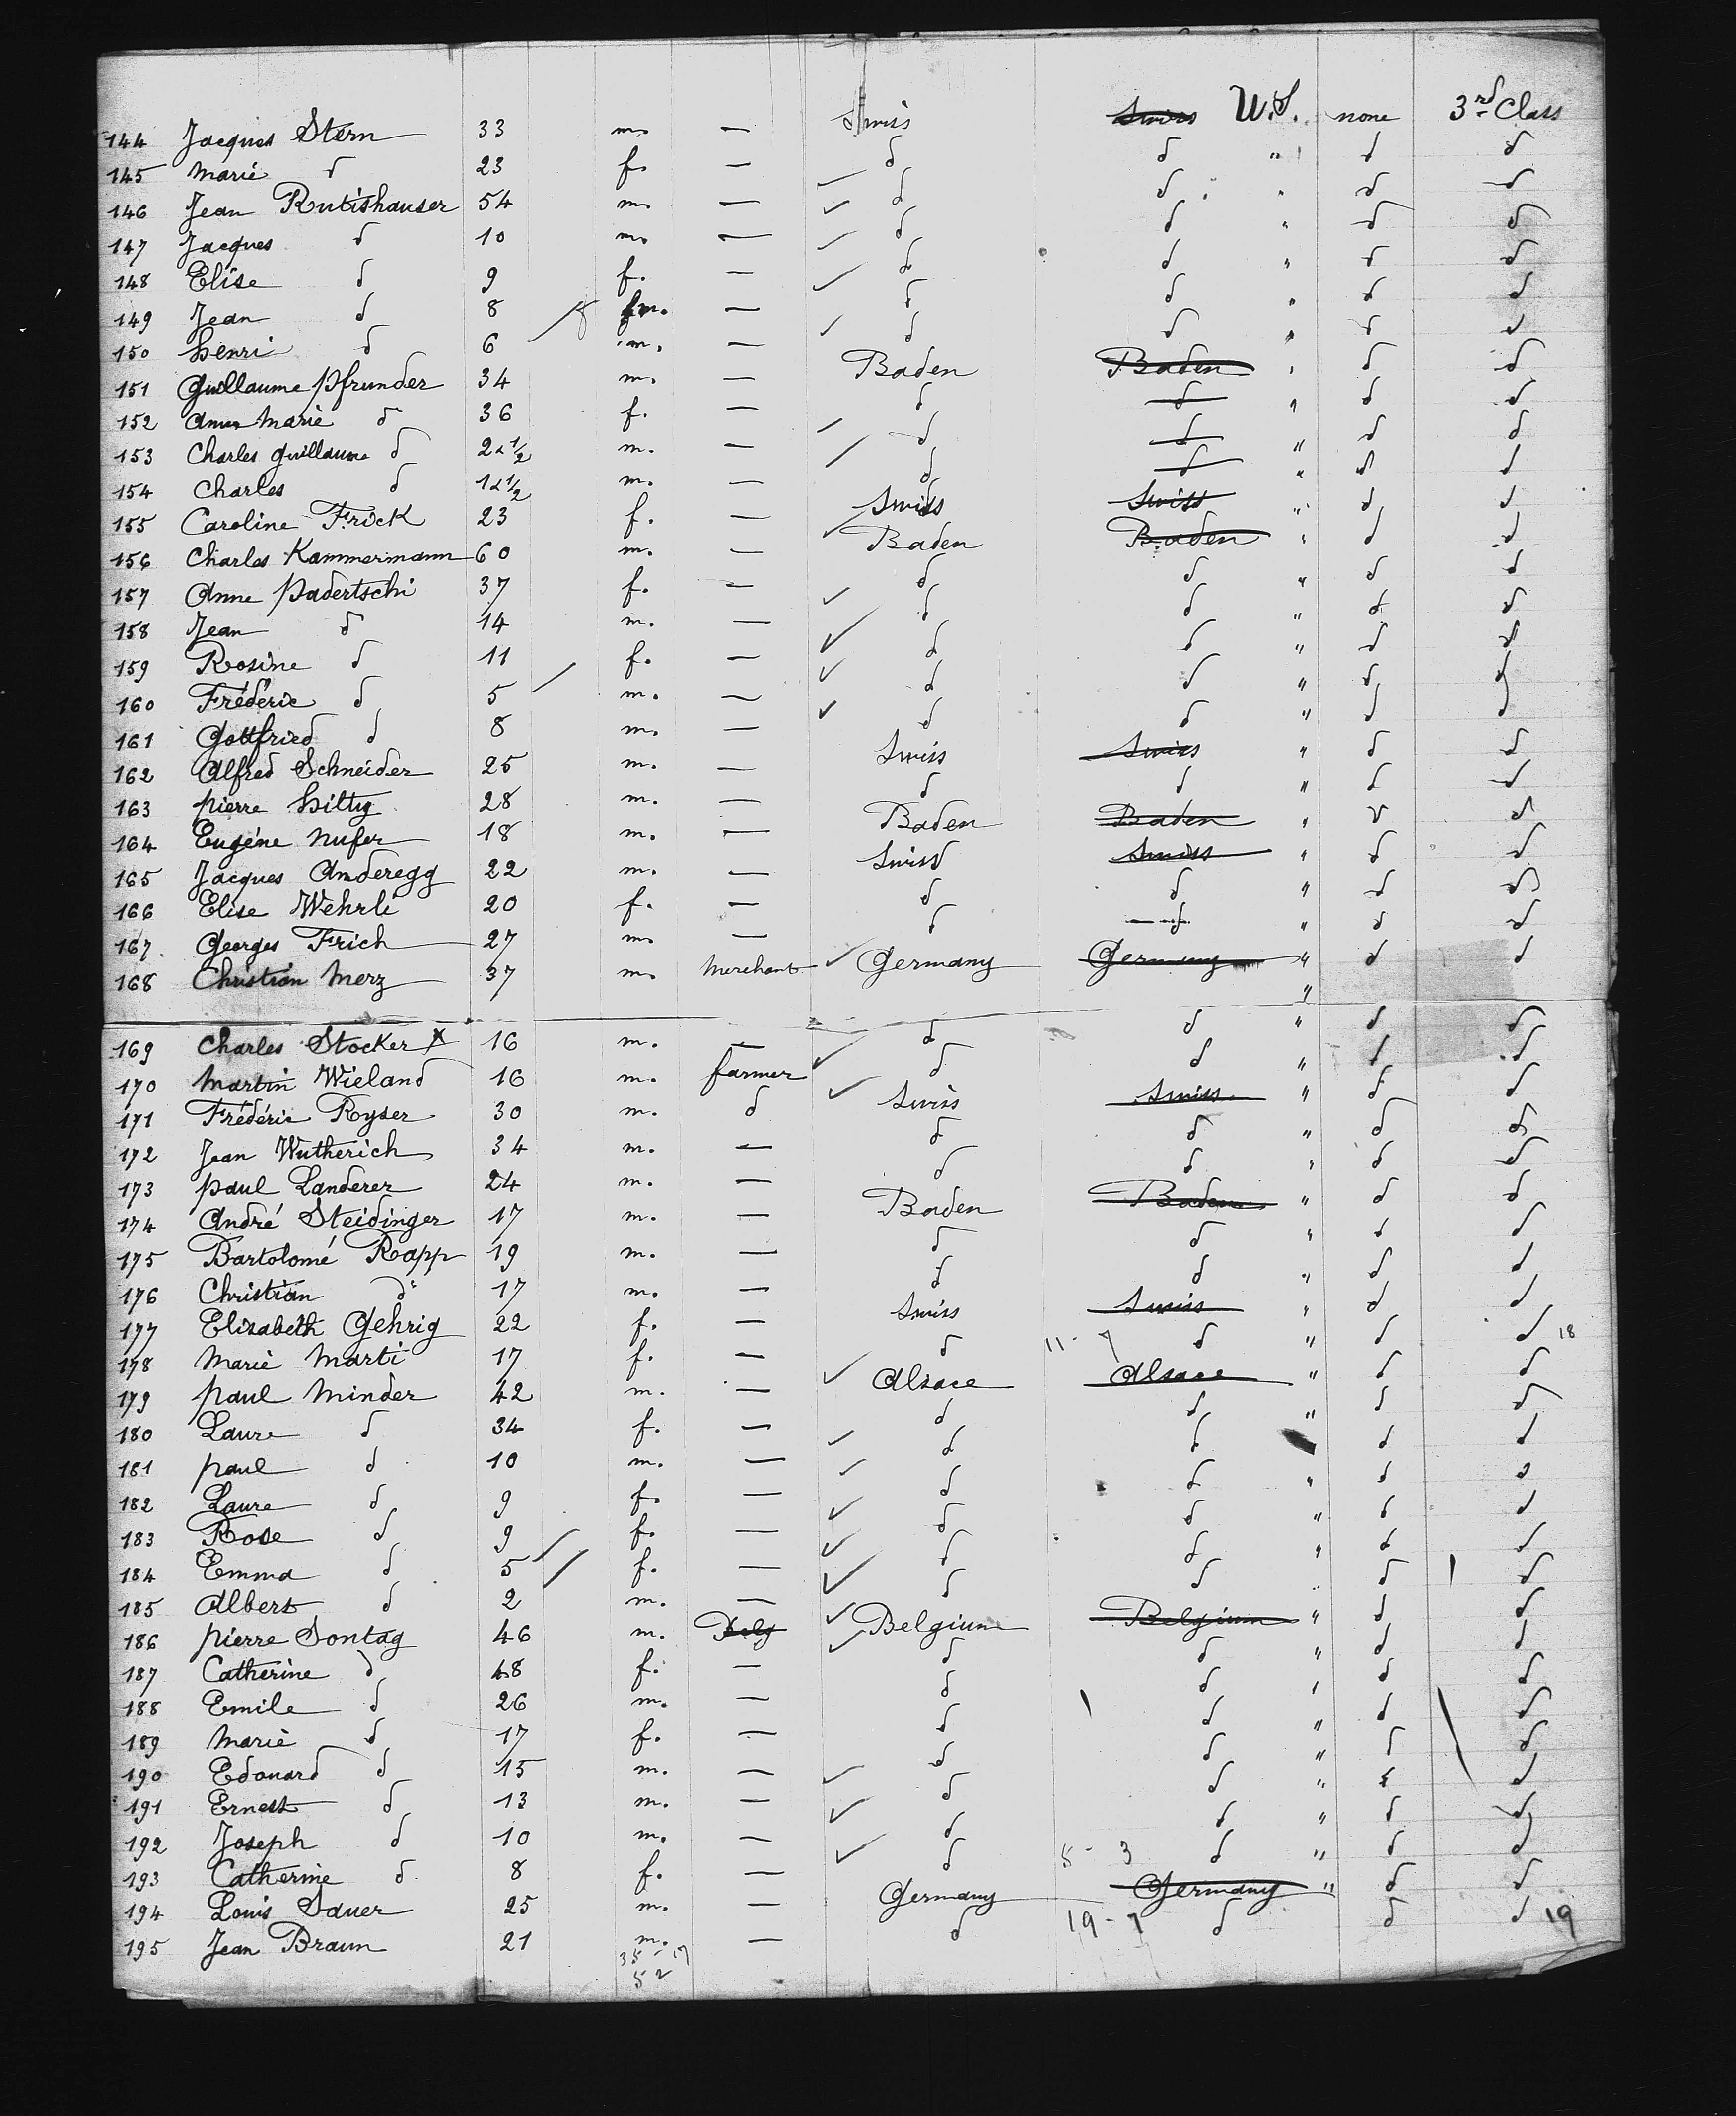 144 Jacques Stern 33 m. — Swiss Swiss U.S. none 3rd Class
145 Marie d 23 f. — d d " d d
146 Jean Rutishauser 54 m. — d d " d d
147 Jacques d 10 m. — d d " d d
148 Elise d 9 f. — d d " d d
149 Jean d 8 m. — d d " d d
150 Henri d 6 m. — d d " d d
151 Guillaume Pfrunder 34 m. — Baden Baden " d d
152 Anna Marie d 36 f. — d d " d d
153 Charles Guillaume d 2 1/2 m. — d d " d d
154 Charles d 1 1/2 m. — d d " d d
155 Caroline Frick 23 f. — Swiss Swiss " d d
156 Charles Kammermann 60 m. — Baden Baden " d d
157 Anne Padertschi 37 f. — d d " d d
158 Jean d 14 m. — d d " d d
159 Rosine d 11 f. — d d " d d
160 Frédéric d 5 m. — d d " d d
161 Gottfried d 8 m. — d d " d d
162 Alfred Schneider 25 m. — Swiss Swiss " d d
163 Pierre Hilty 28 m. — d d " d d
164 Eugéne Nufer 18 m. — Baden Baden " d d
165 Jacques Anderegg 22 m. — Swiss Swiss " d d
166 Elise Wehrli 20 f. — d d " d d
167. Georges Frich 27 m. — d d " d d
168 Christian Merz 37 m. Merchant Germany Germany " d d
169 Charles Stocker x 16 m. — d d " d d
170 Martin Wieland 16 m. farmer d d " d d
171 Frédéric Ryser 30 m. d Swiss Swiss " d d
172 Jean Wutherich 34 m. — d d " d d
173 Paul Landerer 24 m. — d d " d d
174 André Steidinger 17 m. — Baden Baden " d d
175 Bartolomé Rapp 19 m. — d d " d d
176 Christian d 17 m. — d d " d d
177 Elizabeth Gehrig 22 f. — Swiss Swiss " d d
178 Marie Marti 17 f. — d 11 - 7 d " d d 18
179 Paul Minder 42 m. — Alsace Alsace " d d
180 Laure d 34 f. — d d " d d
181 Paul d 10 m. — d d d d
182 Laure d 9 f. — d d " d d
183 Rose d 9 f. — d d " d d
184 Emma d 5 f. — d d " d d
185 Albert d 2 m. — d d " d d
186 Pierre Sontag 46 m. Belg Belgium Belgium " d d
187 Catherine d 48 f. — d d " d d
188 Emile d 26 m. — d d " d d
189 Marie d 17 f. — d d " d d
190 Edouard d 15 m. — d d " d d
191 Ernest d 13 m. — d d " d d
192 Joseph d 10 m. — d d " d d
193 Catherine d 8 f. — d 5 - 3 d " d d
194 Louis Sauer 25 m. — Germany Germany " d d
195 Jean Braun 21 m. — d 19 - 7 d d d 19
35 - 17
52